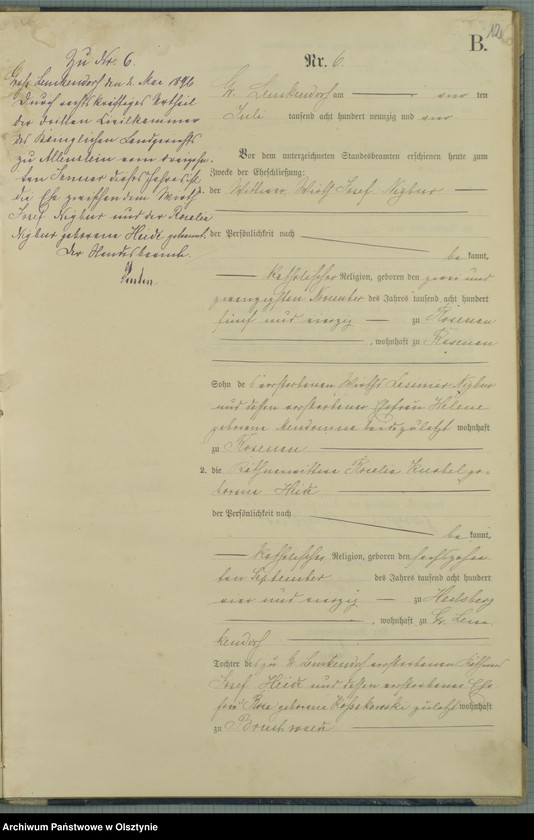 12
B.
Zu Nr. 6.
Groß Lemkendorf den 2. Mai 1896
Durch rechtskräftiges Urtheil
der dritten Civilkammer
des Königlichen Landgerichts
zu Allenstein vom
ten Januar dieses Jahres ist
die Ehe zwischen dem Wirth
Josef Nigbur und der Rosalia
Nigbur geborene Heide getrennt.
Der Standesbeamte.
Nr. 6
Gr. Lemkendorf am vier ten
Juli tausend acht hundert neunzig und vier
Vor dem unterzeichneten Standesbeamten erschienen heute zum
Zwecke der Eheschließung:
1. der Wittwer, Wirth Josef Nigbur
der Persönlichkeit nach
be kannt,
katholischer Religion, geboren den zwei und
zwanzigsten November des Jahres tausend acht hundert
fünf und vierzig zu Kosenen
, wohnhaft zu Kosenen
Sohn des verstorbenen Wirths Nigbur
und dessen verstorbener Ehefrau Helene
geborene beide zuletzt wohnhaft
zu Kosenen
2. die Käthnerwittwe Rosalia Knobel ge-
borene Heide
der Persönlichkeit nach
be kannt,
katholischer Religion, geboren den sechszehn
ten September des Jahres tausend acht hundert
vier und vierzig zu Heilsberg
, wohnhaft zu Gr. Lem
kendorf
Tochter des zu Gr. Lemkendorf verstorbenen Käthners
Josef Heide und dessen verstorbener Ehe
frau Rosa geborene zuletzt wohnhaft
zu
Archiwum Państwowe w Olsztynie